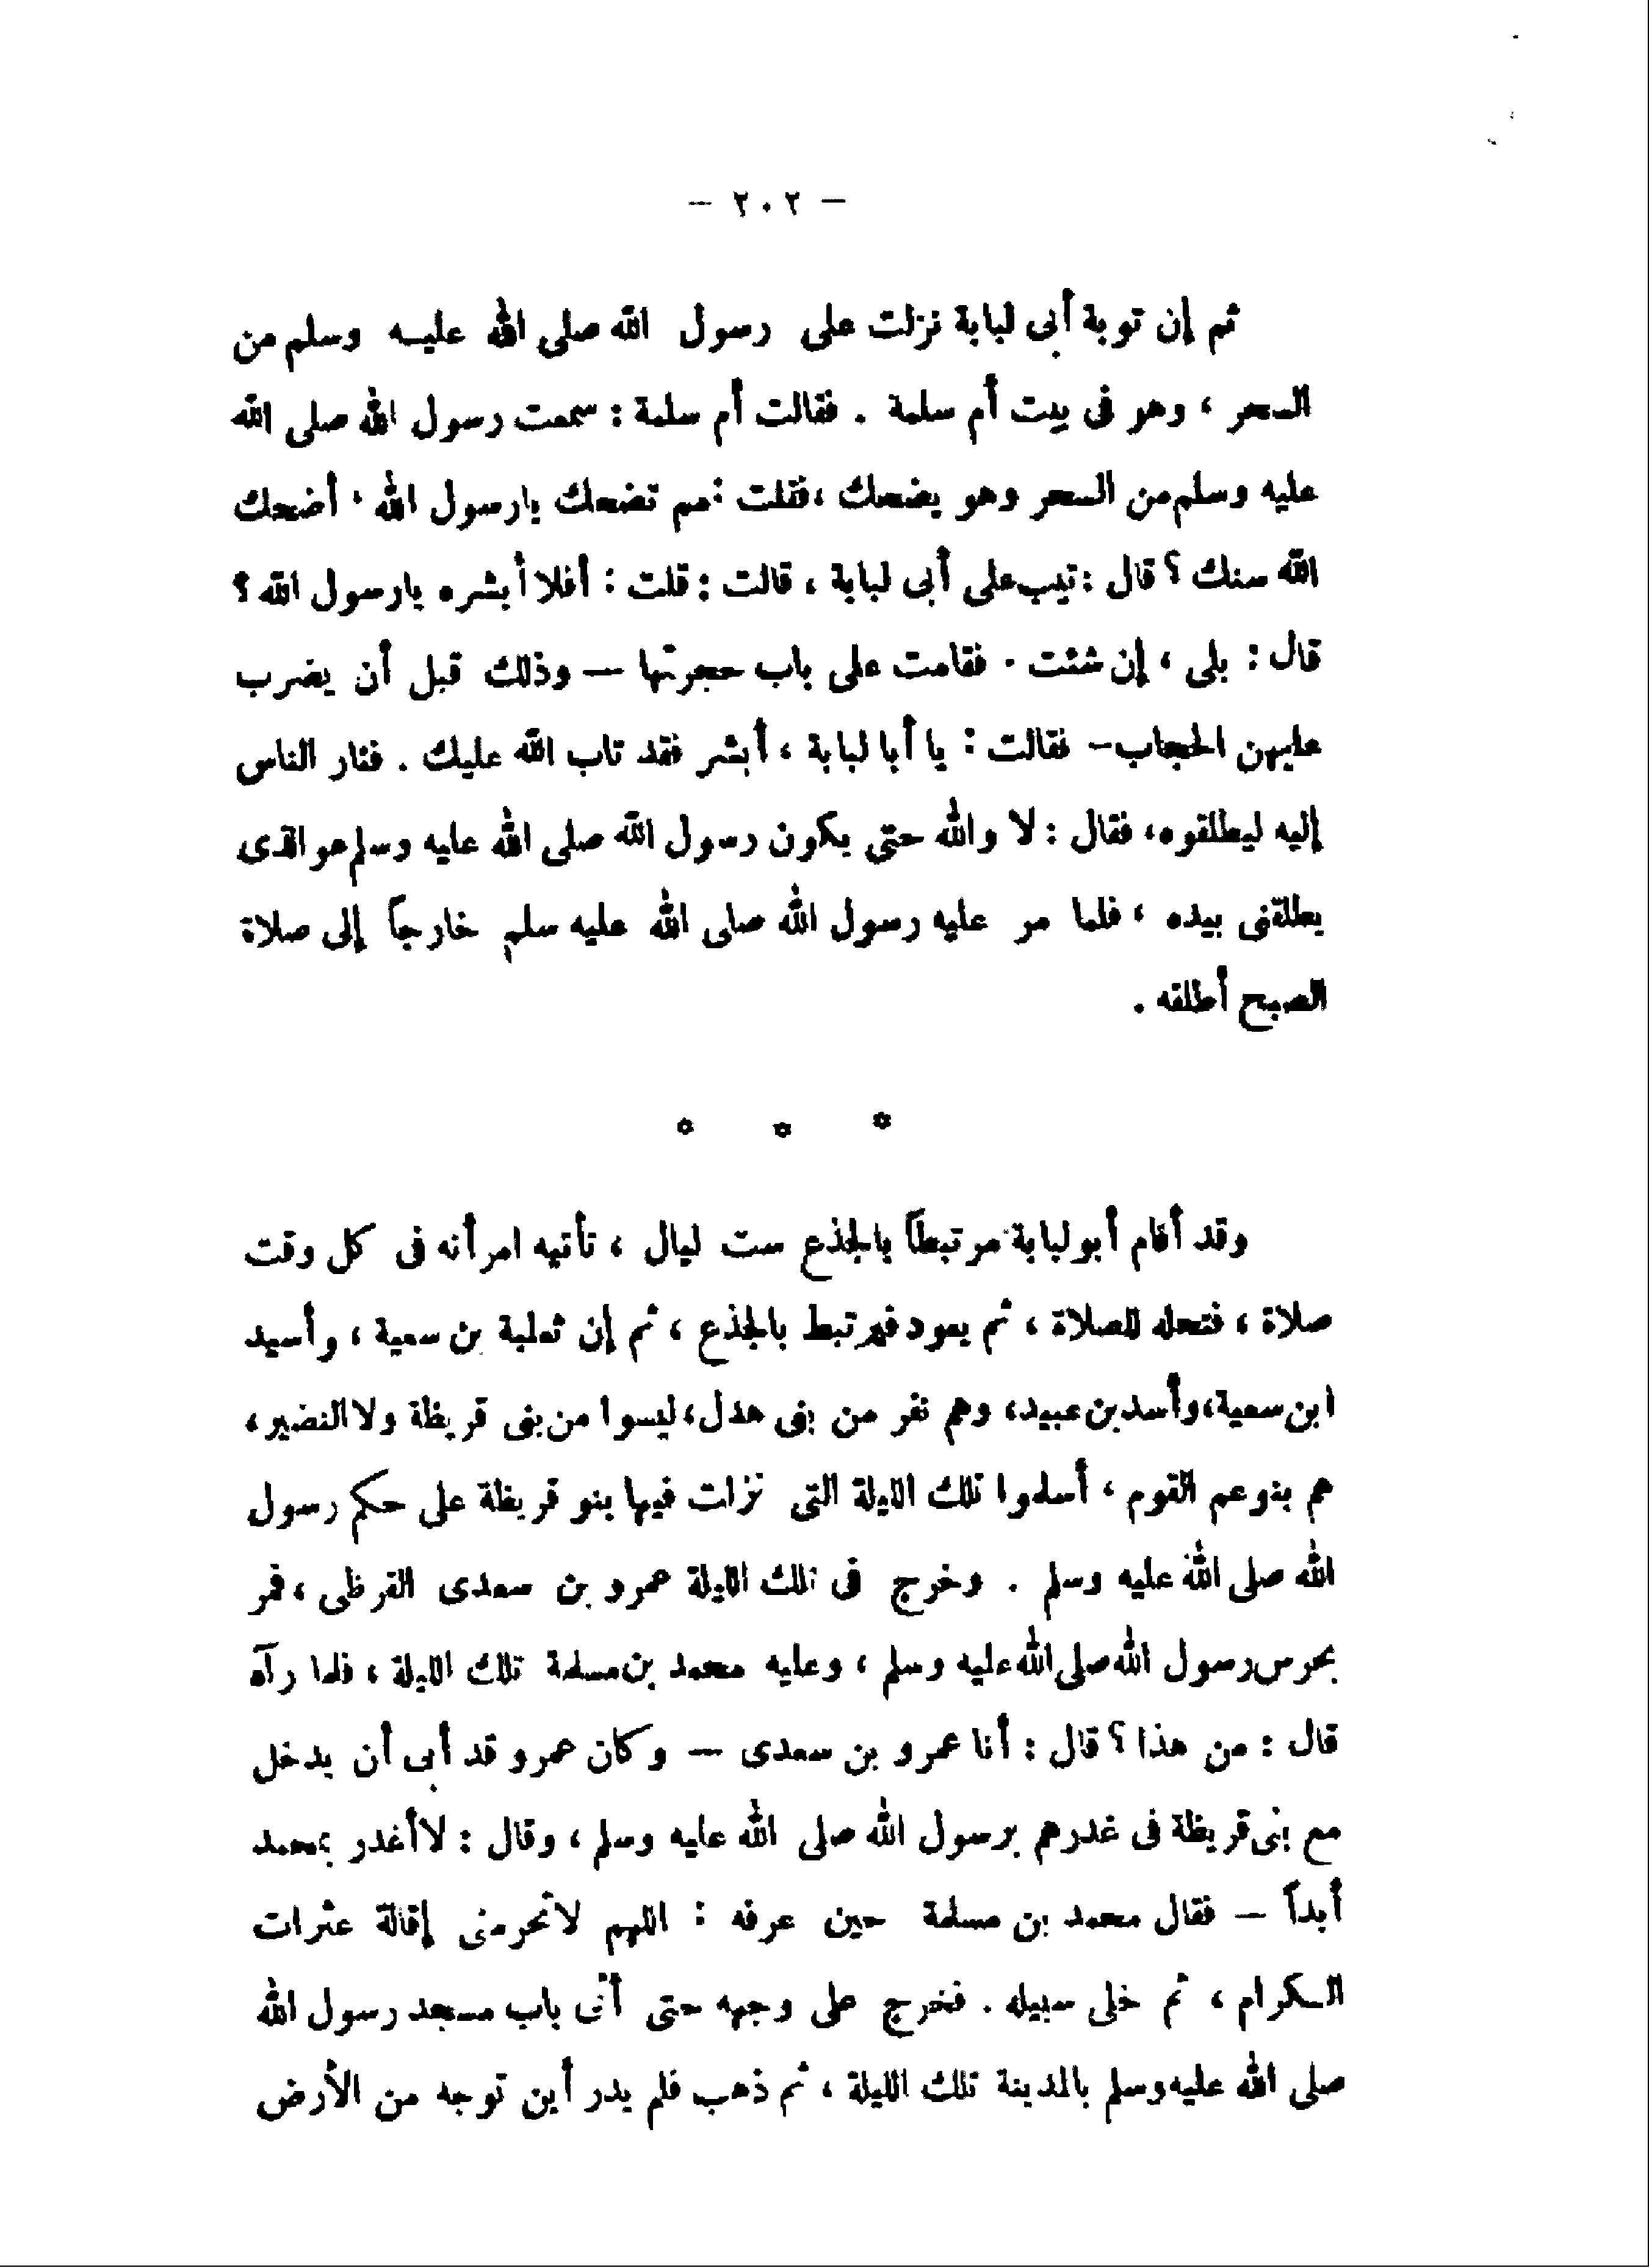 — ٢٠٢ —
ثم إن توبة أبى لبابة نزلت على رسول الله صلى الله عليه وسلم من
السحر ، وهو فى بيت أم سلمة . فقالت أم سلمة : سمعت رسول الله صلى الله
عليه وسلم من السحر وهو يضحك ، فقلت : مم تضحك يارسول الله ، أضحك
الله سنك ؟ قال : تيب على أبى لبابة ، قالت : قلت : أفلا أبشره يارسول الله ؟
قال : بلى ، إن شئت . فقامت على باب حجرتها — وذلك قبل أن يضرب
عليهن الحجاب — فقالت : يا أبا لبابة ، أبشر فقد تاب الله عليك . فثار الناس
إليه ليطلقوه ، فقال : لا والله حتى يكون رسول الله صلى الله عليه وسلم هو الذى
يطلقنى بيده ، فلما مر عليه رسول الله صلى الله عليه سلم خارجاً إلى صلاة
الصبح أطلقه .
* * *
وقد أقام أبو لبابة مرتبطاً بالجذع ست ليال ، تأتيه امرأته فى كل وقت
صلاة ، فتحله للصلاة ، ثم يعود فيرتبط بالجذع ، ثم إن ثعلبة بن سعية ، وأسيد
ابن سعية ، وأسد بن عبيد ، وهم نفر من بنى هدل ، ليسوا من بنى قريظة ولا النضير ،
هم بنو عم القوم ، أسلموا تلك الليلة التى نزلت فيها بنو قريظة على حكم رسول
الله صلى الله عليه وسلم . وخرج فى تلك الليلة عمرو بن سعدى القرظى ، فمر
بحرس رسول الله صلى الله عليه وسلم ، وعليه محمد بن مسلمة تلك الليلة ، فلما رآه
قال : من هذا ؟ قال : أنا عمرو بن سعدى — وكان عمرو قد أبى أن يدخل
مع بنى قريظة فى غدرهم برسول الله صلى الله عليه وسلم ، وقال : لا أغدر بمحمد
أبداً — فقال محمد بن مسلمة حين عرفه : اللهم لاتحرمنى إقالة عثرات
الكرام ، ثم خلى سبيله . فخرج على وجهه حتى أتى باب مسجد رسول الله
صلى الله عليه وسلم بالمدينة تلك الليلة ، ثم ذهب فلم يدر أين توجه من الأرض